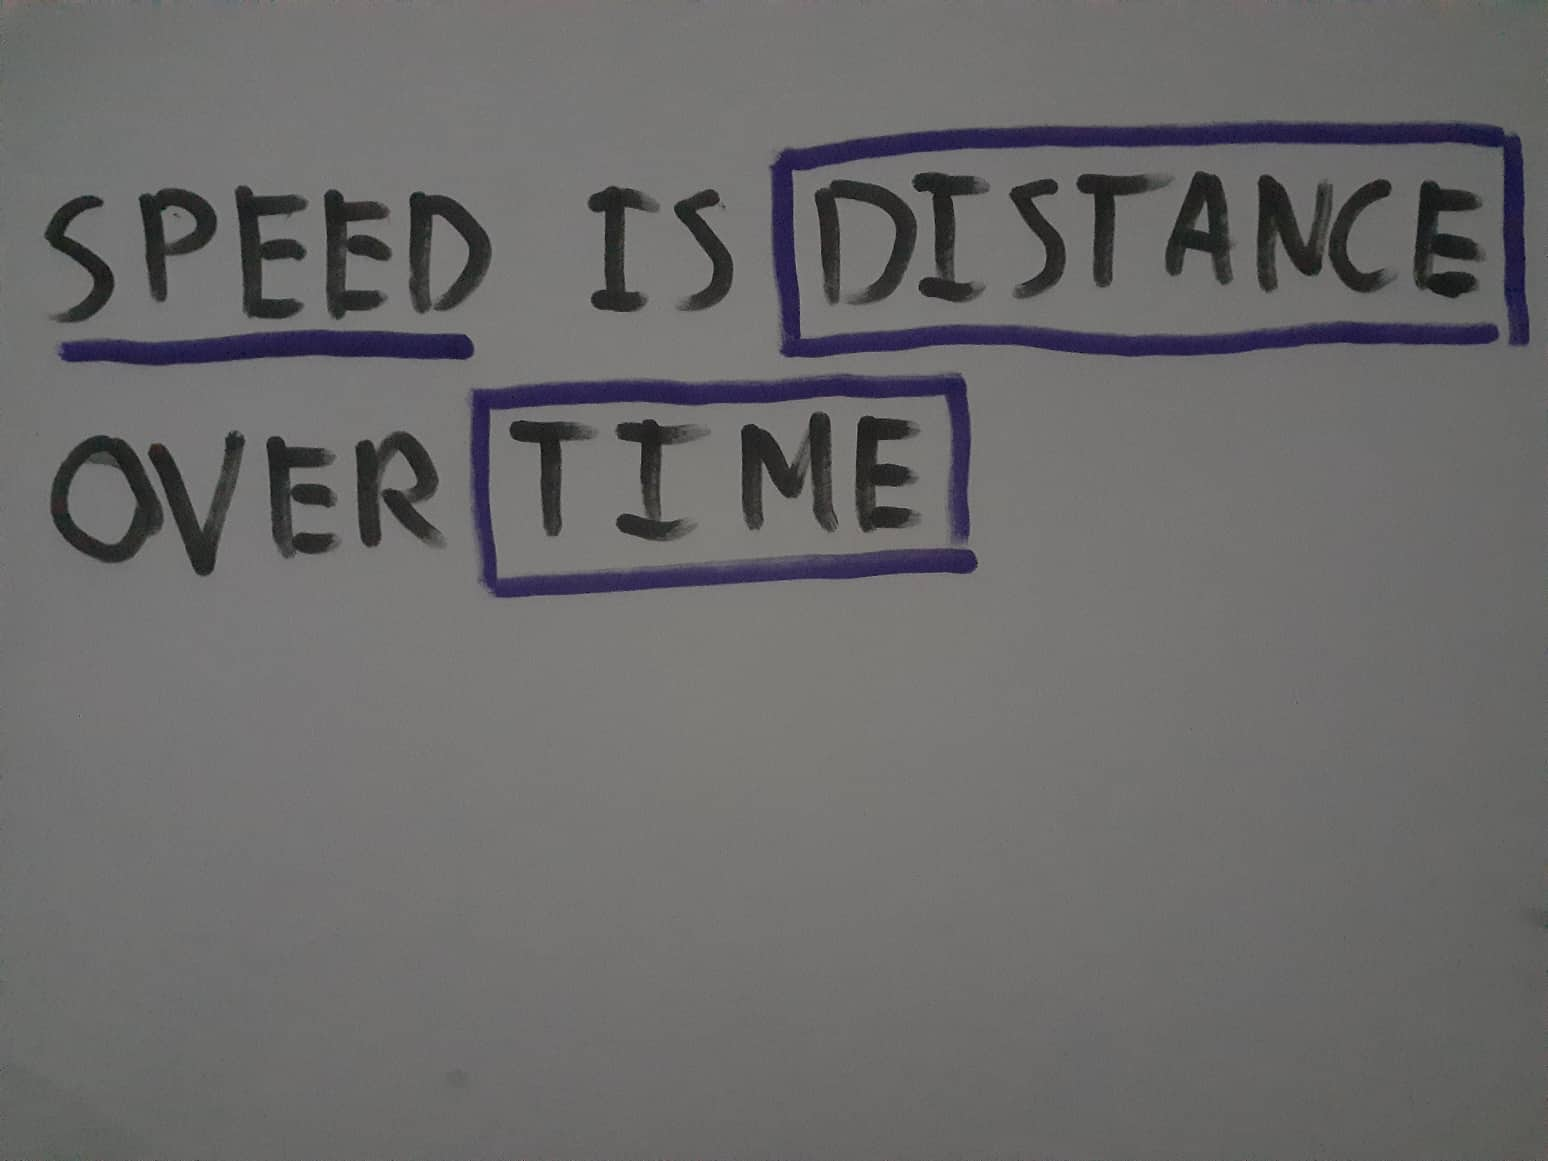 SPEED IS DISTANCE
OVER TIME